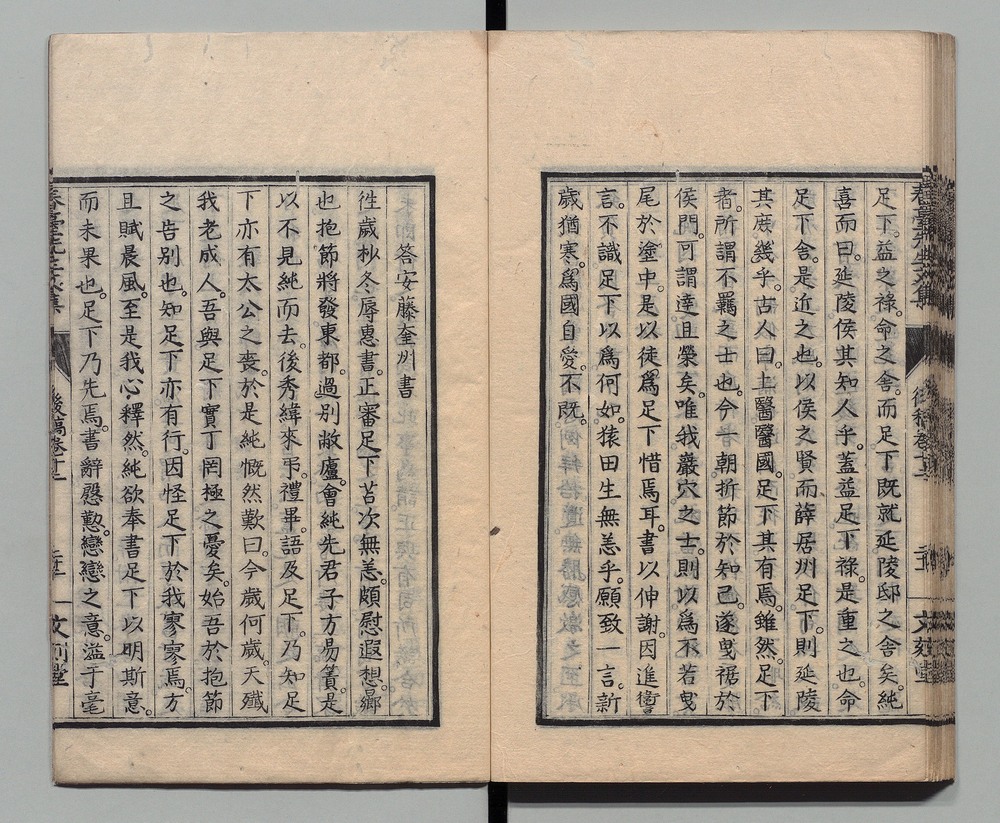 足下。益之祿。命之舍。而足下既就延陵邸之舍矣。純
喜而曰。延陵侯其知人乎。蓋益足下祿。是重之也。命
足下舍。是近之也。以侯之賢而薛居州足下。則延陵
其庶幾乎。古人曰。上醫醫國。足下其有焉。雖然。足下
者。所謂不羈之士也。今昔朝折節於知己。遂曳裾於
侯門。可謂達且榮矣。唯我巖穴之士。則以爲不若曳
尾於塗中。是以徒爲足下惜焉耳。書以伸謝。因進
言。不識足下以爲何如。猿田生無恙乎。願致一言。新
歲猶寒。爲國自愛。不既。
答安藤奎州書
徃歲杪冬。辱惠書。正審足下苫次無恙。頗慰遐想。曏
也抱節將發東都。過別敝廬。會純先君子方易簀。是
以不見純而去。後秀緯來弔。禮畢。語及足下。乃知足
下亦有太公之喪。於是純慨然歎曰。今歲何歲。天殲
我老成人。吾與足下實丁罔極之憂矣。始吾於抱節
之告別也。知足下亦有行。因怪足下於我寥寥焉。方
且賦晨風。至是我心釋然。純欲奉書足下以明斯意。
而未果也。足下乃先焉。書辭慇懃。戀戀之意。溢于毫
後稿卷十三